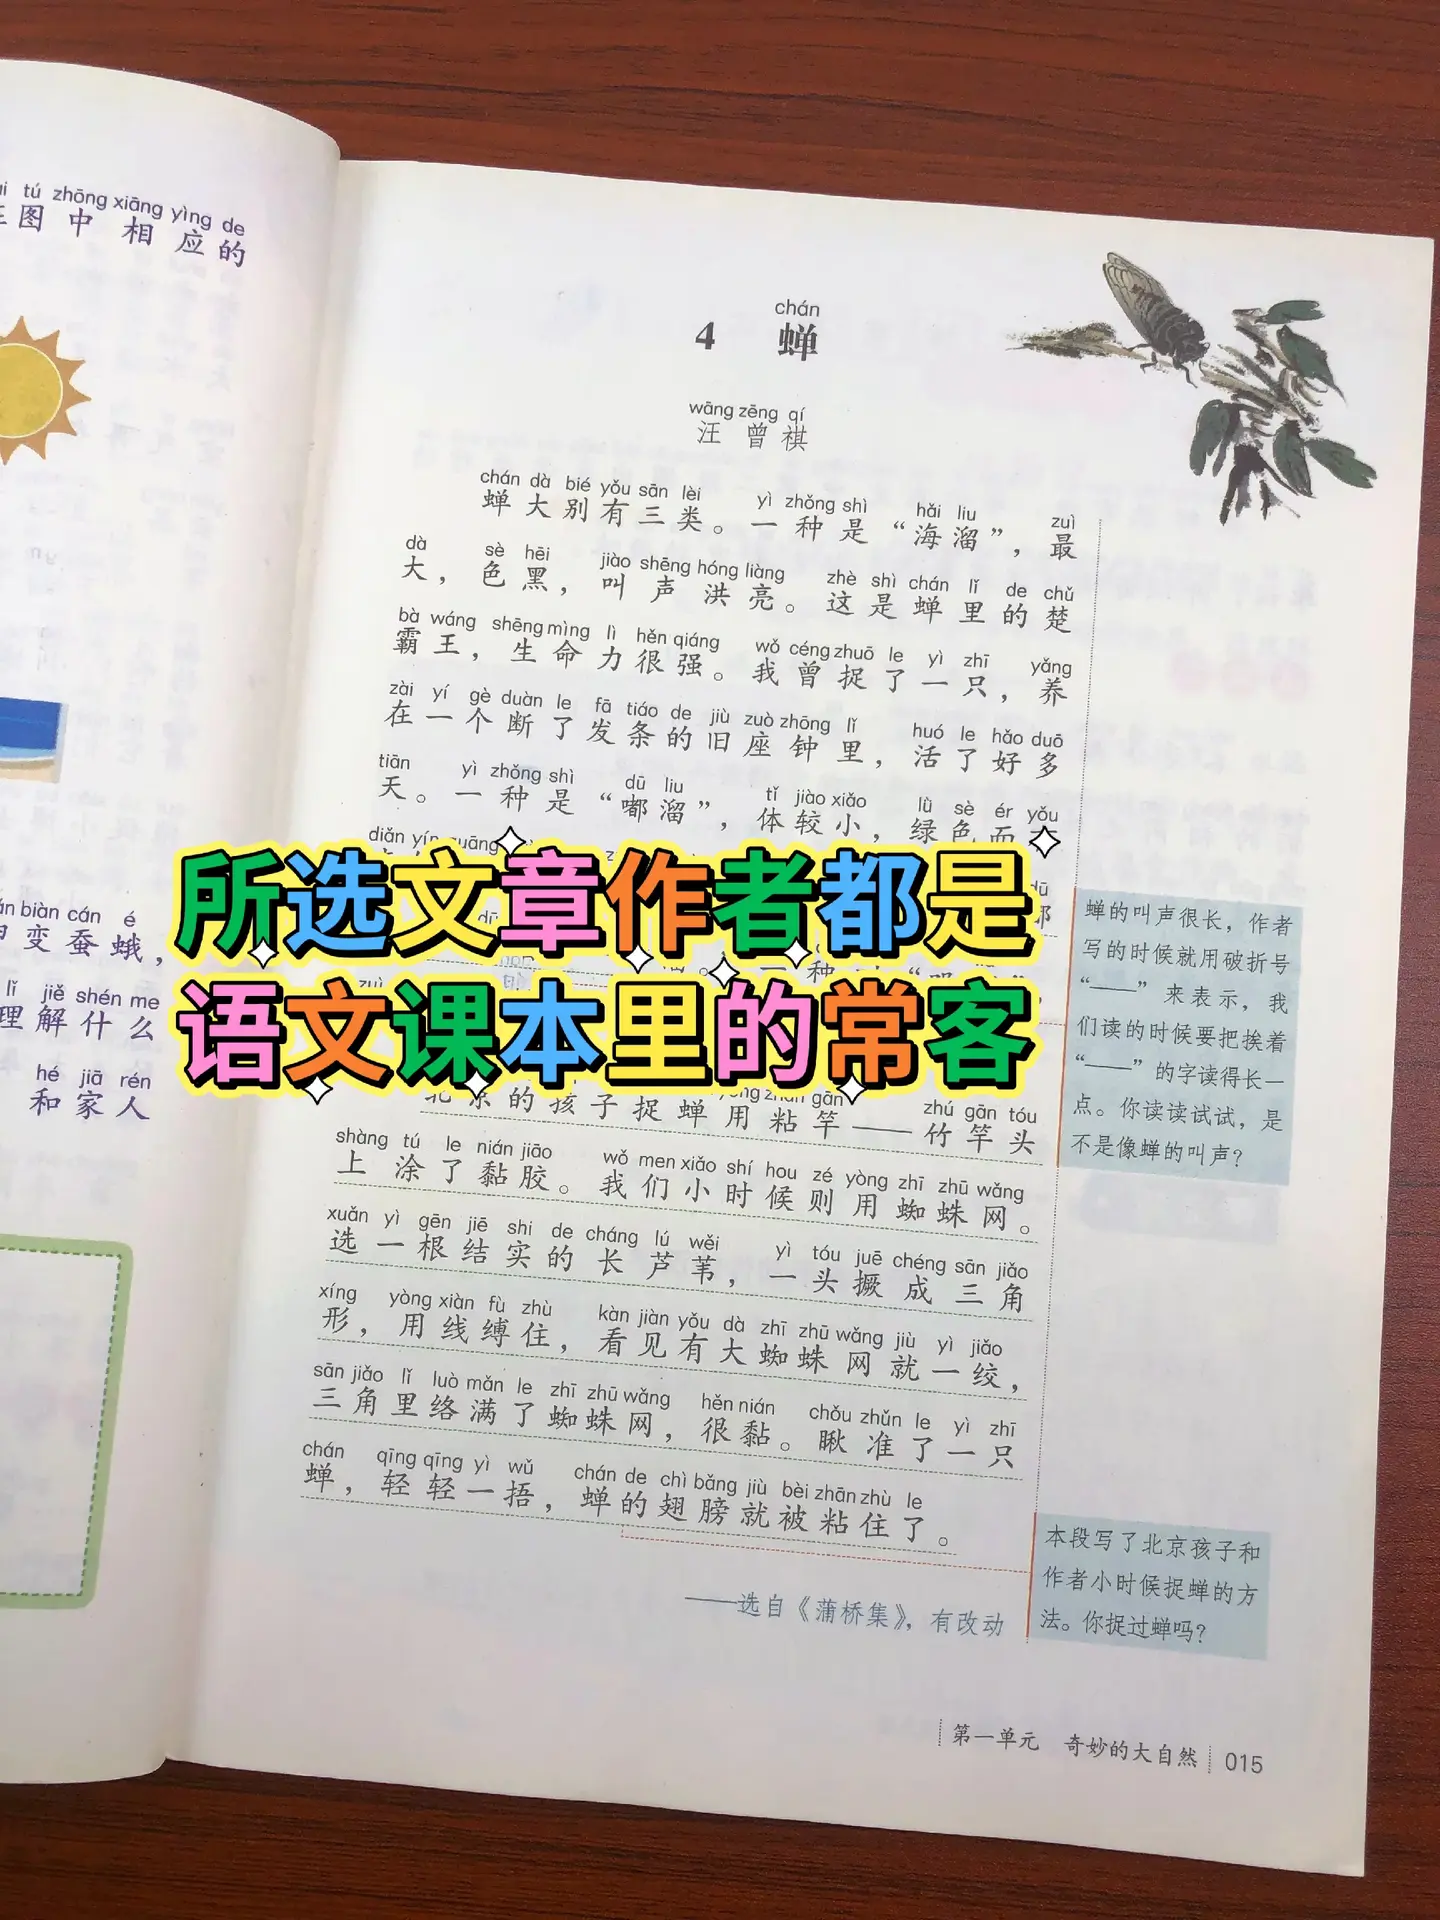 i tú zhōng xiāng yìng de
图中相应的
biàn cán é
变蚕蛾，
lǐ jiě shén me
理解什么
hé jiā rén
和家人
chán
4 蝉
wāng zēng qí
汪曾祺
chán dà bié yǒu sān lèi yì zhǒng shì hǎi liu zuì
蝉大别有三类。一种是“海溜”，最
dà sè hēi jiào shēng hóng liàng zhè shì chán lǐ de chǔ
大，色黑，叫声洪亮。这是蝉里的楚
bà wáng shēng mìng lì hěn qiáng wǒ céng zhuō le yì zhī yǎng
霸王，生命力很强。我曾捉了一只，养
zài yí gè duàn le fā tiáo de jiù zuò zhōng lǐ huó le hǎo duō
在一个断了发条的旧座钟里，活了好多
tiān yì zhǒng shì dū liu tǐ jiào xiǎo lǜ sè ér yǒu
天。一种是“嘟溜”，体较小，绿色而
diǎn yín guāng
dū
所选文章作者都是
语文课本里的常客
zhú gān tóu
北京的孩子捉蝉用粘竿——竹竿头
shàng tú le nián jiāo wǒ men xiǎo shí hou zé yòng zhī zhū wǎng
上涂了黏胶。我们小时候则用蜘蛛网。
xuǎn yì gēn jiē shi de cháng lú wěi yì tóu juē chéng sān jiǎo
选一根结实的长芦苇，一头撅成三角
xíng yòng xiàn fù zhù kàn jiàn yǒu dà zhī zhū wǎng jiù yì jiǎo
形，用线缚住，看见有大蜘蛛网就一绞，
sān jiǎo lǐ luò mǎn le zhī zhū wǎng hěn nián chǒu zhǔn le yì zhī
三角里络满了蜘蛛网，很黏。瞅准了一只
chán qīng qīng yì wǔ chán de chì bǎng jiù bèi zhān zhù le
蝉，轻轻一捂，蝉的翅膀就被粘住了。
——选自《蒲桥集》，有改动
蝉的叫声很长，作者
写的时候就用破折号
“——”来表示，我
们读的时候要把挨着
“——”的字读得长一
点。你读读试试，是
不是像蝉的叫声？
本段写了北京孩子和
作者小时候捉蝉的方
法。你捉过蝉吗？
第一单元 奇妙的大自然 015